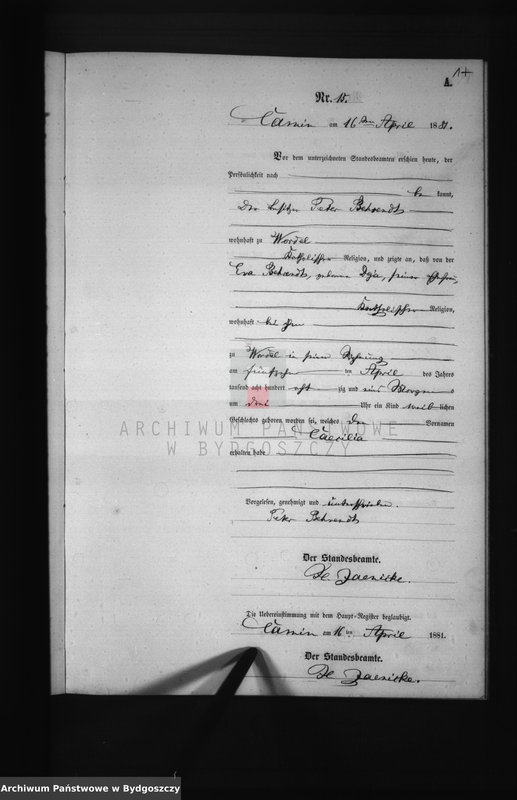 A.
Nr. 15.
Camin am 16ten April 1881.
Vor dem unterzeichneten Standesbeamten erschien heute, der
Persönlichkeit nach
be kannt,
Der Besitzer Peter Behrendt
wohnhaft zu Wordel
katholischer Religion, und zeigte an, daß von der
Eva Behrendt, geborene seiner Ehefrau,
katholischer Religion,
wohnhaft bei ihm
zu Wordel in seiner Wohnung
am fünfzehnten April des Jahres
tausend acht hundert acht zig und eins Morgens
um drei Uhr ein Kind weib lichen
Geschlechts geboren worden sei, welches den Vornamen
Caecilia
erhalten habe
Vorgelesen, genehmigt und unterschrieben.
Peter Behrendt
Der Standesbeamte.
Jaenicke.
Die Uebereinstimmung mit dem Haupt-Register beglaubigt.
Camin am 16ten April 1881.
Der Standesbeamte.
Jaenicke.
ARCHIWUM PAŃSTWOWE
W BYDGOSZCZY
Archiwum Państwowe w Bydgoszczy